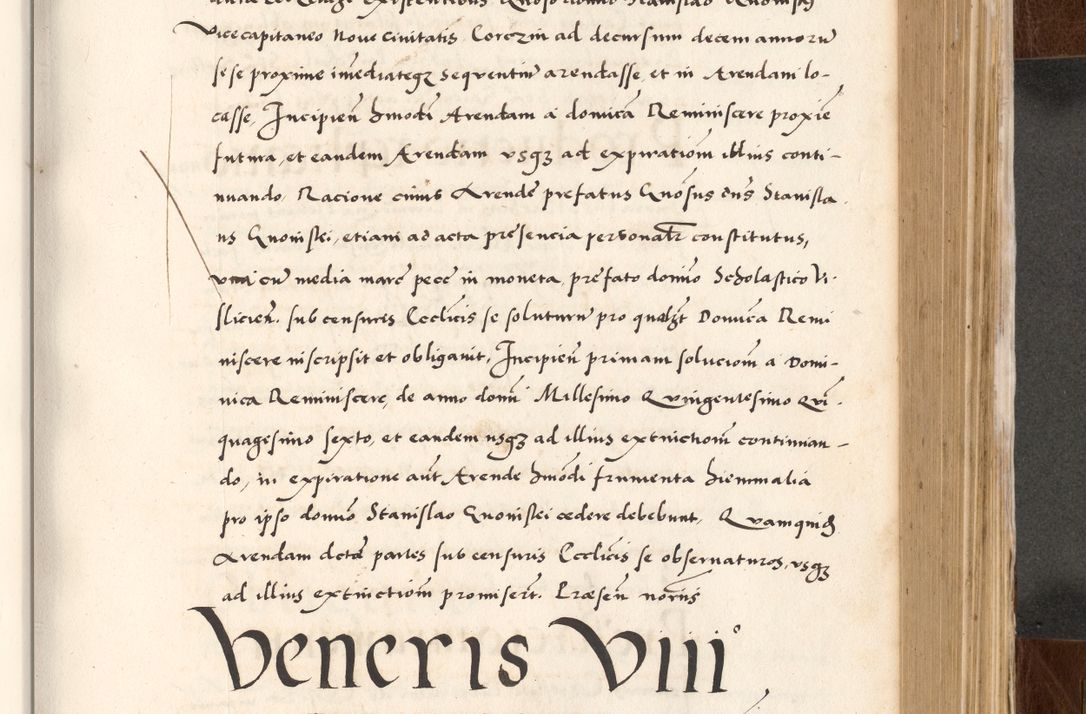 Vicecapitaneo Noue Ciuitatis Corczin ad decursum decem annorũ
sese proxime im̃ediategȝ sequentiũ arendasse, et in Arendam lo-
casse, Incipien̄ hmōdi Arendam a domica Reminiscere proxīe
futura, et eandem Arendam vsqȝ ad expirationem illius conti-
nuando, Racione cuius Arende prefatus Gnōsus dn̄s Stanisla
us Gnoinski, etiam ad acta presencia personalr constitutus,
cũ media marc pecc̄ in moneta, prefato domino Scholastico Vi-
slicien̄. sub censuris Ecclīcis se soluturũ pro qualȝt Domĩca Remi
niscere inscripsit et obligauit, Incipien̄ primam solucionem a Domi-
nica Reminiscere, de anno domī Millesimo Quingentesimo Qũi-
quagesimo sexto, et eandem usqȝ ad illius extinctionem continuan-
do, in expiratione aut̄ Arende hmōdi frumenta hiemmalia
pro ipso domino Stanislao Gnoinskei cedere debebunt, Quamquidȝ
Arendam dctē partes sub censuris Ecclīcis se obseruaturos, vsqȝ
ad illius extinctionem promisert̄. Præsen̄ norijs
Veneris Viii°